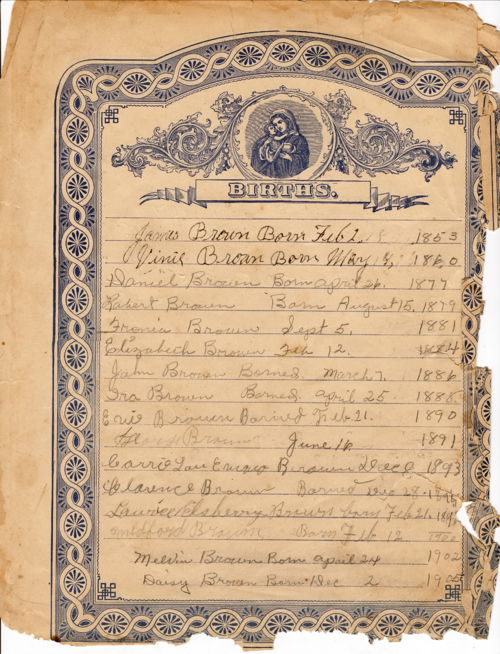 BIRTHS.
James Brown Born Feb 2 1853
Vinie Brown Born May 8, 1860
Daniel Brown Born april 26. 1877
Robert Brown Born August 15, 1879
Fronia Brown Sept 5, 1881
Elizabeth Brown Feb 12. 1884
Jam Brown Borned March 7. 1886
Ira Brown Borned april 25 1888
Evie Brown Borned Feb 21. 1890
Brown June 16 1891
Carrie Lou Brown Dec 1893
Clarence Brown Borned Dec 28
Brown born Feb 21.
Brown Born Feb 12
Melvin Brown Born april 24 1902
Daisy Brown Born Dec 2 1905